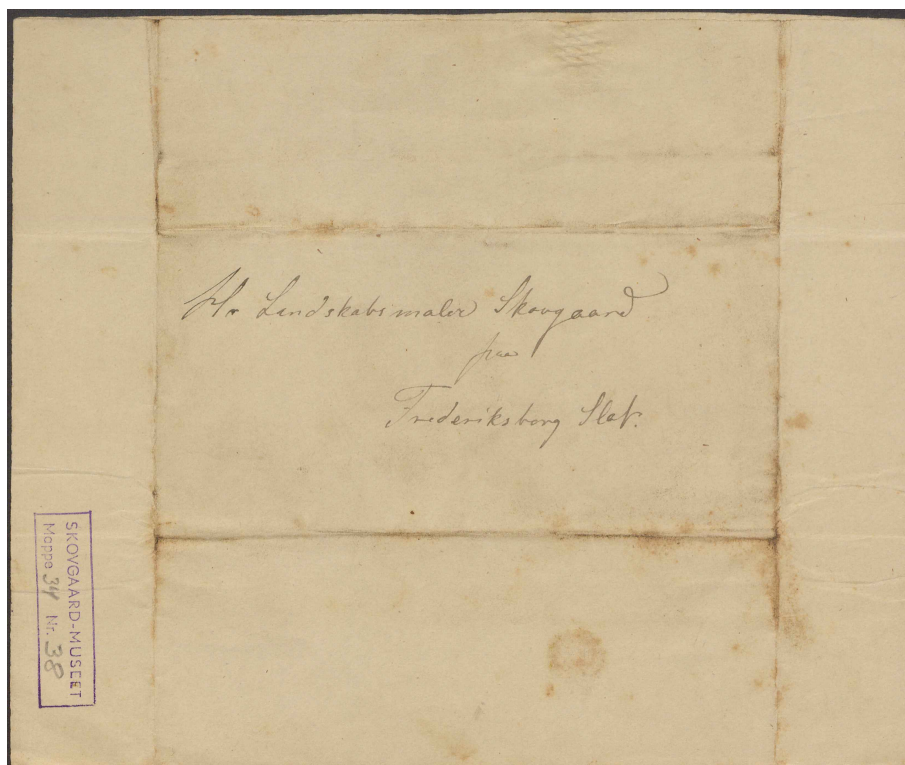 Hr Landskabsmaler Skovgaard
paa
Frederiksborg Slot.
SKOVGAARD-MUSEET
Mappe 34 Nr. 38